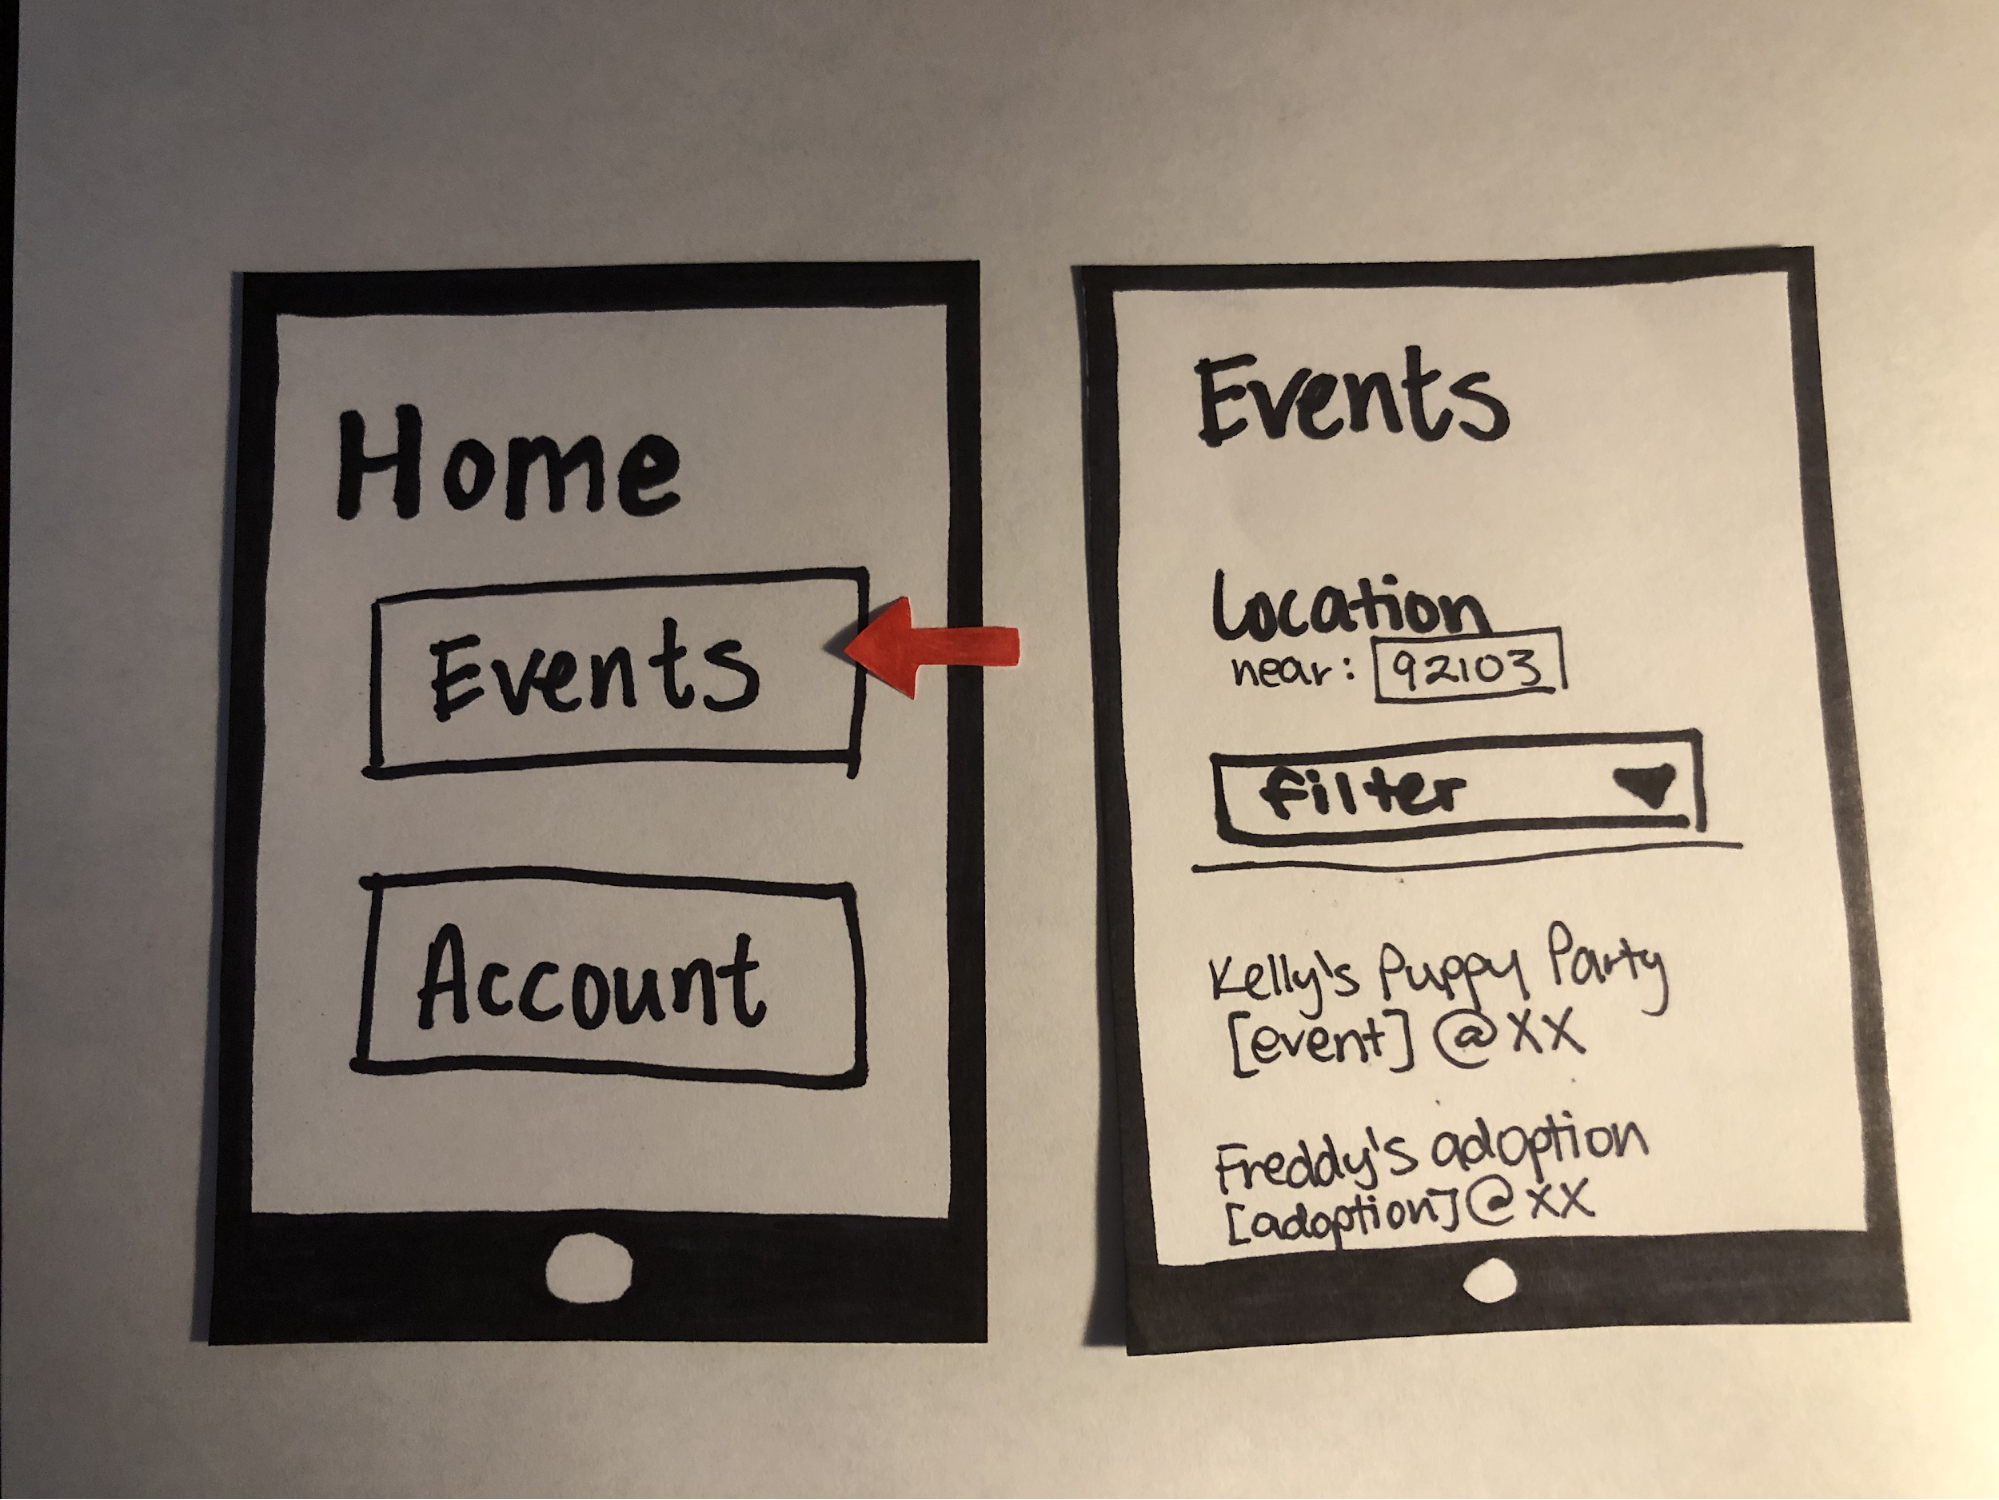 Home
Events
Account
Events
Location
near: 92103
filter
Kelly's Puppy Party
[event] @ XX
Freddy's adoption
[adoption] @ XX